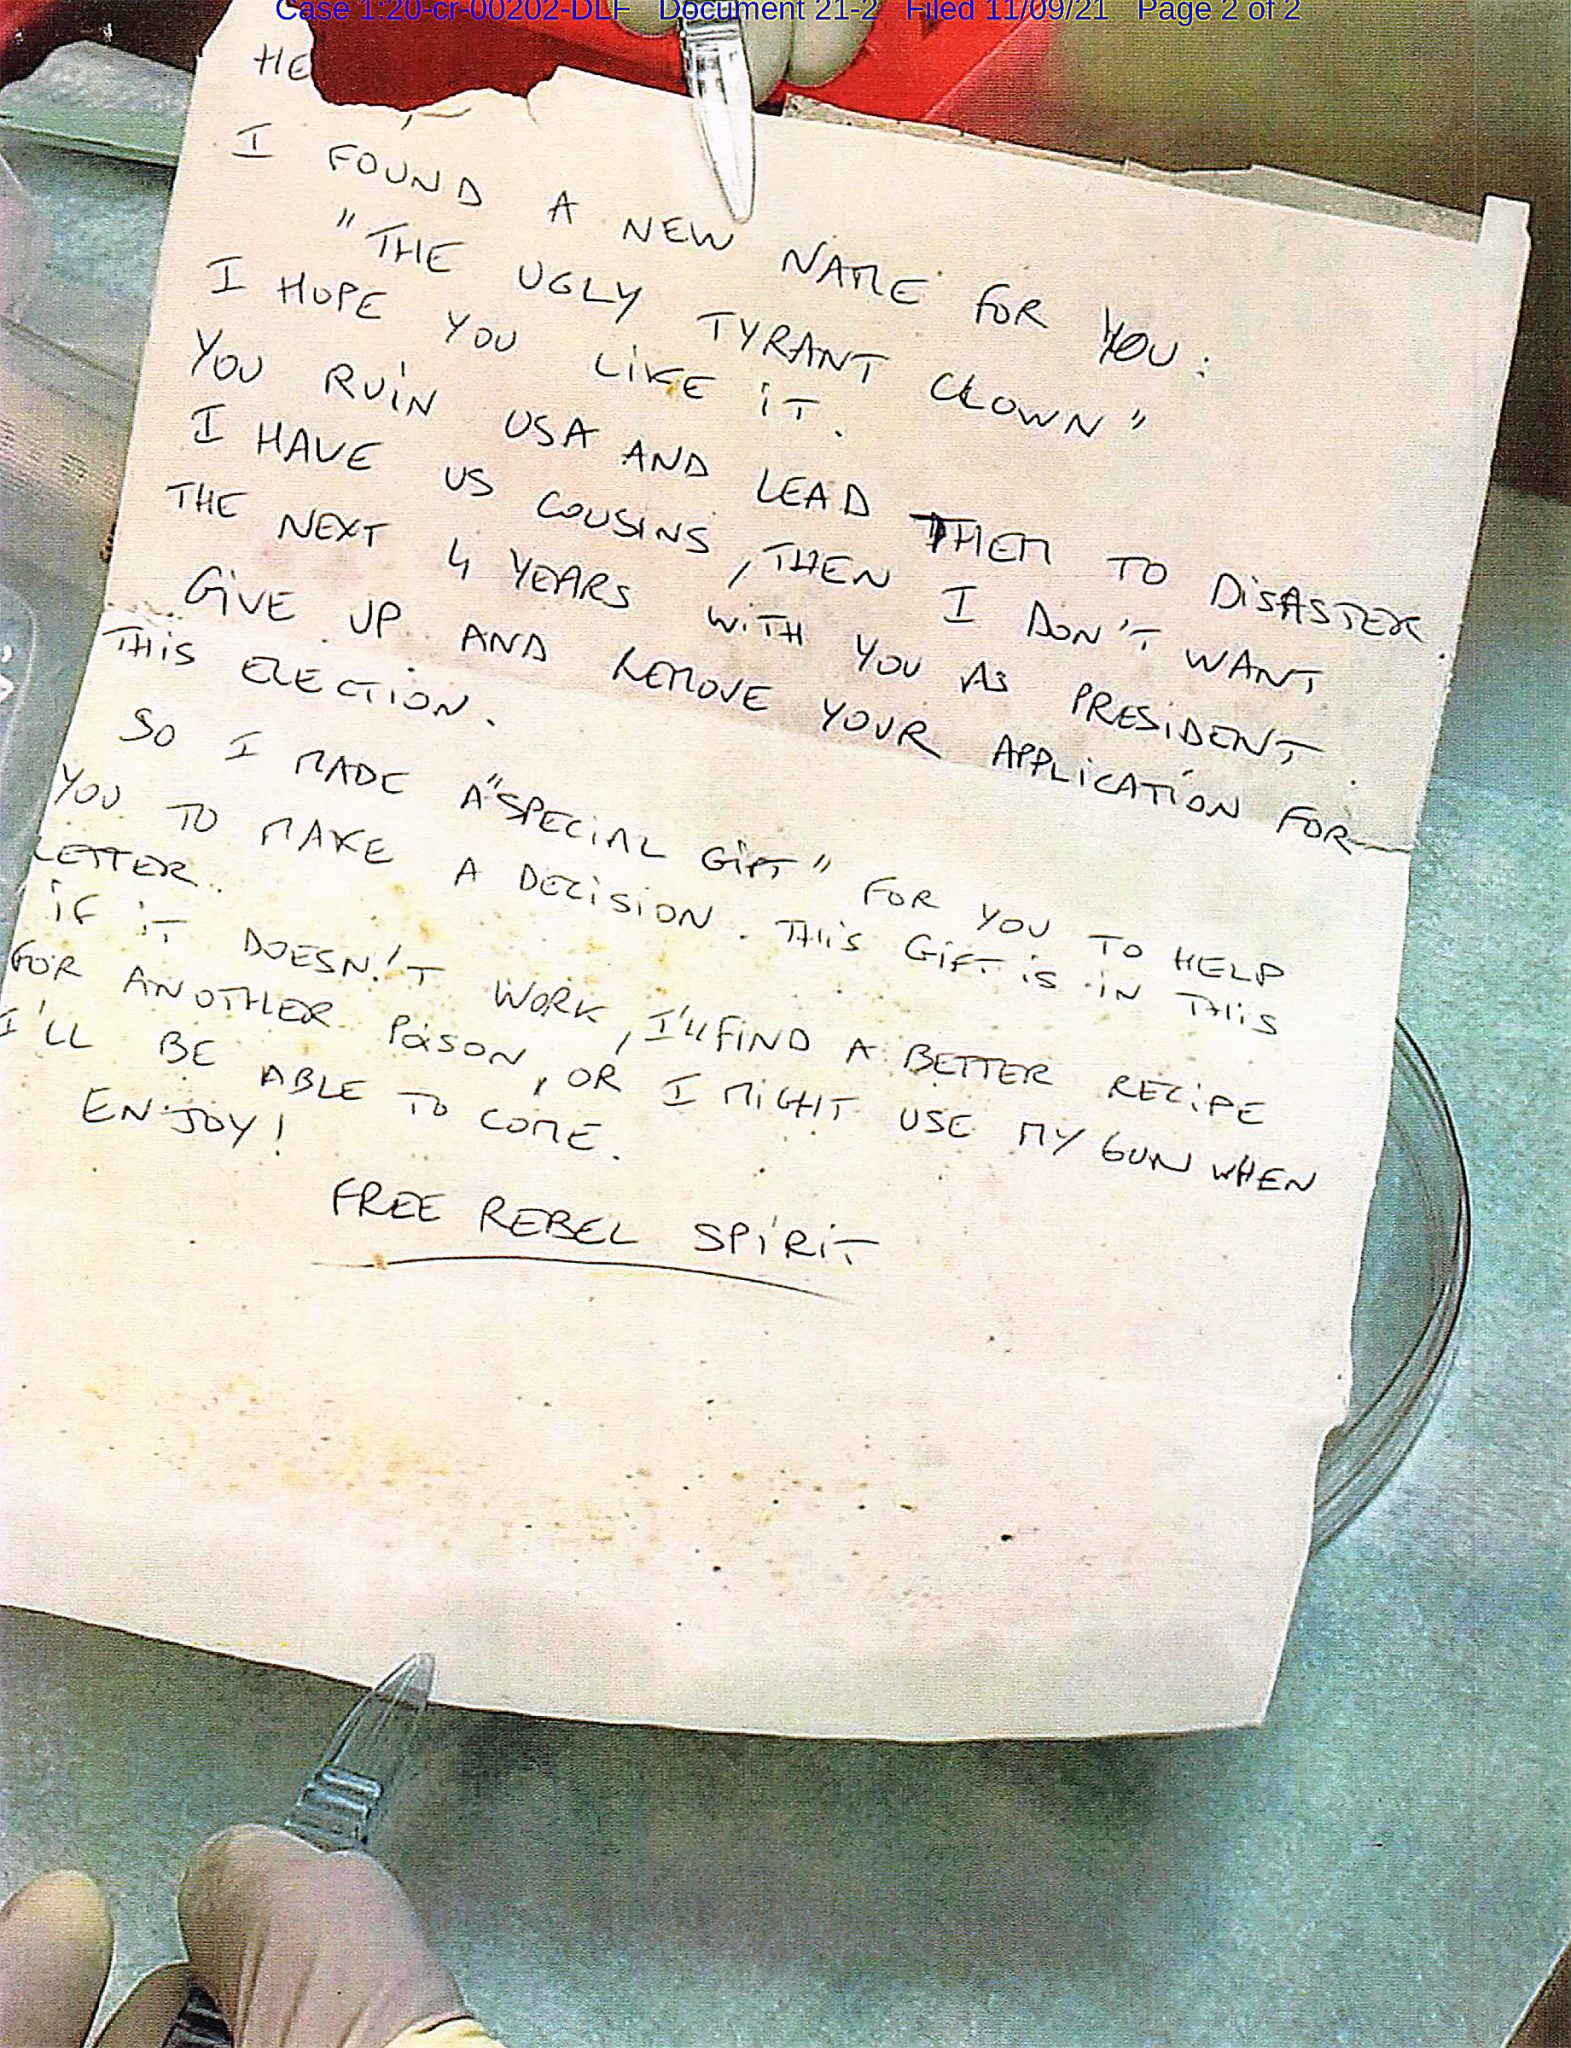 Case 1:20-cr-00202-DLF Document 21-2 Filed 11/09/21 Page 2 of 2
HE
I FOUND A NEW NAME FOR YOU:
"THE UGLY TYRANT CLOWN"
I HOPE YOU LIKE IT.
YOU RUIN USA AND LEAD THEM TO DISASTER.
I HAVE US COUSINS, THEN I DON'T WANT
THE NEXT 4 YEARS WITH YOU AS PRESIDENT.
GIVE UP AND REMOVE YOUR APPLICATION FOR
THIS ELECTION.
SO I MADE A "SPECIAL GIFT" FOR YOU TO HELP
YOU TO MAKE A DECISION. THIS GIFT IS IN THIS
LETTER.
IF IT DOESN'T WORK, I'll FIND A BETTER RECIPE
FOR ANOTHER POISON, OR I MIGHT USE MY GUN WHEN
I'LL BE ABLE TO COME.
ENJOY!
FREE REBEL SPIRIT